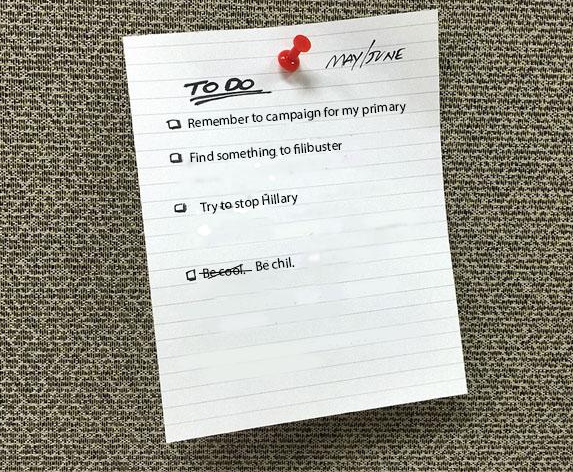 TO DO
MAY/JUNE
Remember to campaign for my primary
Find something to filibuster
Try to stop Hillary
Be cool. Be chil.